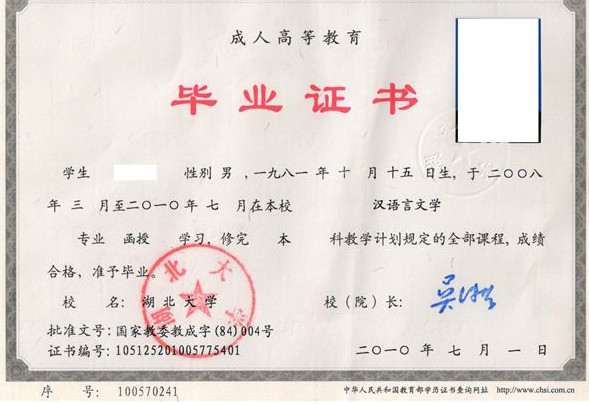 成人高等教育
毕业证书
学生 性别 男 ,一九八一年 十 月 十五 日生, 于 二〇〇八
年 三 月至二〇一〇年 七 月在本校 汉语言文学
专业 函授 学习, 修完 本 科教学计划规定的全部课程, 成绩
合格, 准予毕业。
校 名: 湖北大学 校(院)长:
湖北大学
批准文号: 国家教委教成字(84)004号
证书编号: 105125201005775401 二〇一〇年 七 月 一 日
序 号: 100570241 中华人民共和国教育部学历证书查询网址 http://www.chsi.com.cn